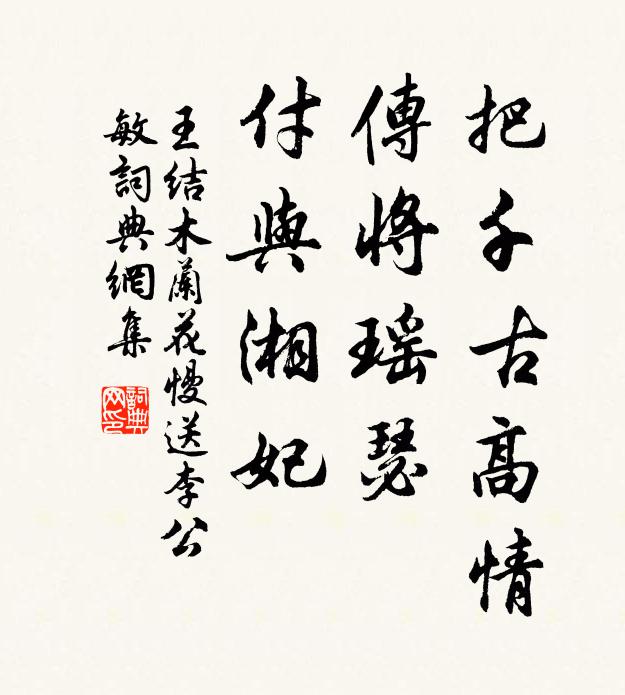 把千古高情
傳將瑶瑟
付與湘妃
王結木蘭花慢送李公
敏詞典網集
詞典
网印